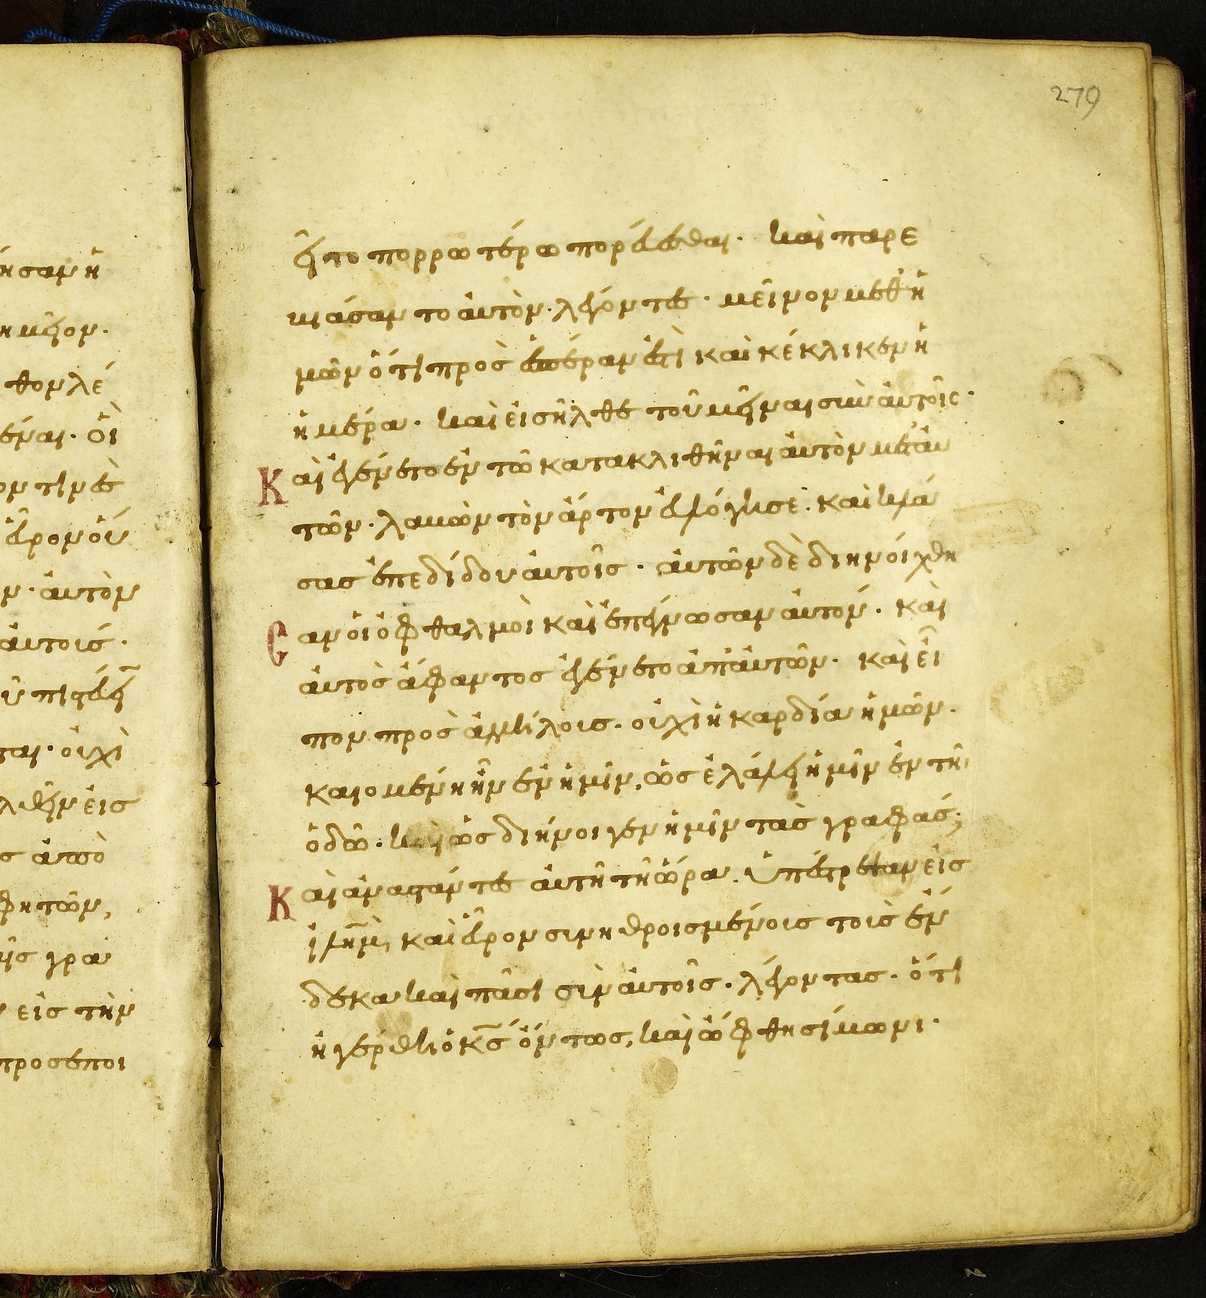 279
ήσαμ ἡ
ημεῖον.
θον λέ
έναι. οἱ
ον τινὲς
εὗρον οὕ
ν. αὐτὸν
αὐτούς.
πιστεύειν
ται. οὐχὶ
λθεῖν εἰς
ς ἀπὸ
φητῶν,
ῆς γρα
εἰς τὴν
προσεποι
εῖτο πορρωτέρω πορεύεσθαι. καὶ παρε
βιάσαντο αὐτὸν. λέγοντες. μεῖνον μεθ ἡ
μῶν ὅτι πρὸς ἑσπέραν ἐστὶ καὶ κέκλικεν ἡ
ἡμέρα. καὶ εἰσῆλθε τοῦ μεῖναι σὺν αὐτοῖς.
Καὶ ἐγένετο ἐν τῶ κατακλιθῆναι αὐτὸν μετ' αὐ
τῶν. λαβὼν τὸν ἄρτον εὐλόγησε. καὶ κλά
σας ἐπεδίδου αὐτοῖς. αὐτῶν δὲ διηνοίχθη
σαν οἱ ὀφθαλμοὶ καὶ ἐπέγνωσαν αὐτόν. καὶ
αὐτὸς ἄφαντος ἐγένετο ἀπ' αὐτῶν. καὶ εἶ
πον πρὸς ἀλλήλους. οὐχὶ ἡ καρδία ἡμῶν.
καιομένη ἦν ἐν ἡμῖν, ὡς ἐλάλει ἡμῖν ἐν τῆ
ὁδῶ. καὶ ὡς διήνοιγεν ἡμῖν τὰς γραφάς;
Καὶ ἀναστάντες αὐτῆ τῆ ὥρα. ὑπέστρεψαν εἰς
ἱλῆμ, καὶ εὗρον συνηθροισμένους τοὺς ἕν
δεκα καὶ πᾶσι σὺν αὐτοῖς. λέγοντας. ὅτι
ἠγέρθη ὁ κς ὄντως, καὶ ὤφθη σίμωνι.